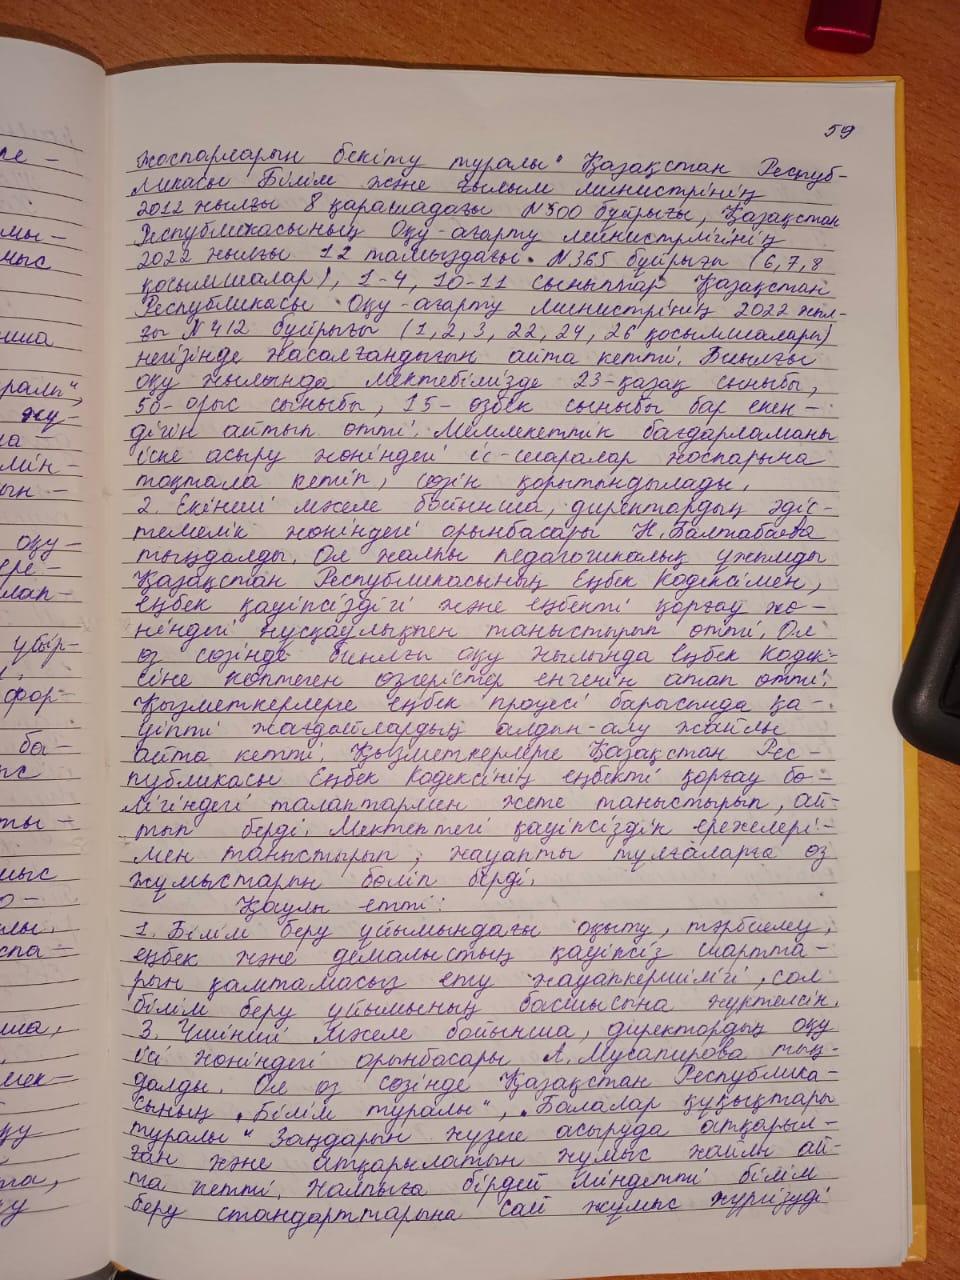 59
жоспарларын бекіту туралы" Қазақстан Респуб-
ликасы Білім және ғылым министрінің
2012 жылғы 8 қарашадағы №500 бұйрығы, Қазақстан
Республикасының Оқу-ағарту министрлігінің
2022 жылғы 12 тамыздағы №365 бұйрығы (6,7,8
қосымшалар), 1-4, 10-11 сыныптар Қазақстан
Республикасы Оқу-ағарту министрінің 2022 жыл-
ғы №412 бұйрығы (1, 2, 3, 22, 24, 26 қосымшалары)
негізінде жасалғандығын айта кетті. Биылғы
оқу жылында мектебімізде 23-қазақ сыныбы,
50-орыс сыныбы, 15-өзбек сыныбы бар екен-
дігін айтып өтті. Мемлекеттік бағдарламаны
іске асыру жөніндегі іс-шаралар жоспарына
тоқтала кетіп, сөзін қорытындылады.
2. Екінші мәселе бойынша, директордың әдіс-
темелік жөніндегі орынбасары Н.Балтабаева
тыңдалды. Ол жалпы педагогикалық ұжымды
Қазақстан Республикасының Еңбек Кодексімен,
еңбек қауіпсіздігі және еңбекті қорғау жө-
ніндегі нұсқаулықпен таныстырып өтті. Ол
өз сөзінде биылғы оқу жылында Еңбек Кодек-
сіне көптеген өзгерістер енгенін атап өтті.
Қызметкерлерге еңбек процесі барысында қа-
уіпті жағдайлардың алдын-алу жайлы
айта кетті. Қызметкерлерге Қазақстан Рес-
публикасы Еңбек Кодексінің еңбекті қорғау бө-
лігіндегі талаптармен жете таныстырып, ай-
тып берді. Мектептегі қауіпсіздік ережелері-
мен таныстырып, жауапты тұлғаларға өз
жұмыстарын бөліп берді.
Қаулы етті:
1. Білім беру ұйымындағы оқыту, тәрбиелеу,
еңбек және демалыстың қауіпсіз шартта-
рын қамтамасыз ету жауапкершілігі, сол
білім беру ұйымының басшысына жүктелсін.
3. Үшінші мәселе бойынша, діректордың оқу
ісі жөніндегі орынбасары Л.Мусапирова тың-
далды. Ол өз сөзінде Қазақстан Республика-
сының „Білім туралы", „Балалар құқықтары
туралы" Заңдарын жүзеге асыруда атқарыл-
ған және атқарылатын жұмыс жайлы ай-
та кетті. Жалпыға бірдей міндетті білім
беру стандарттарына сай жұмыс жүргізуді